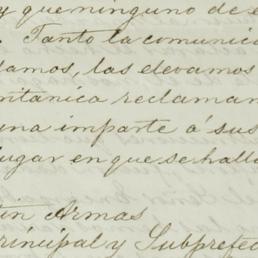 y que ninguno de e
. Tanto la comunica
lamos, las elevamos
itanica reclaman
una imparte á sus
lugar en que se halla
tin Armas
rincipal y Subprefec